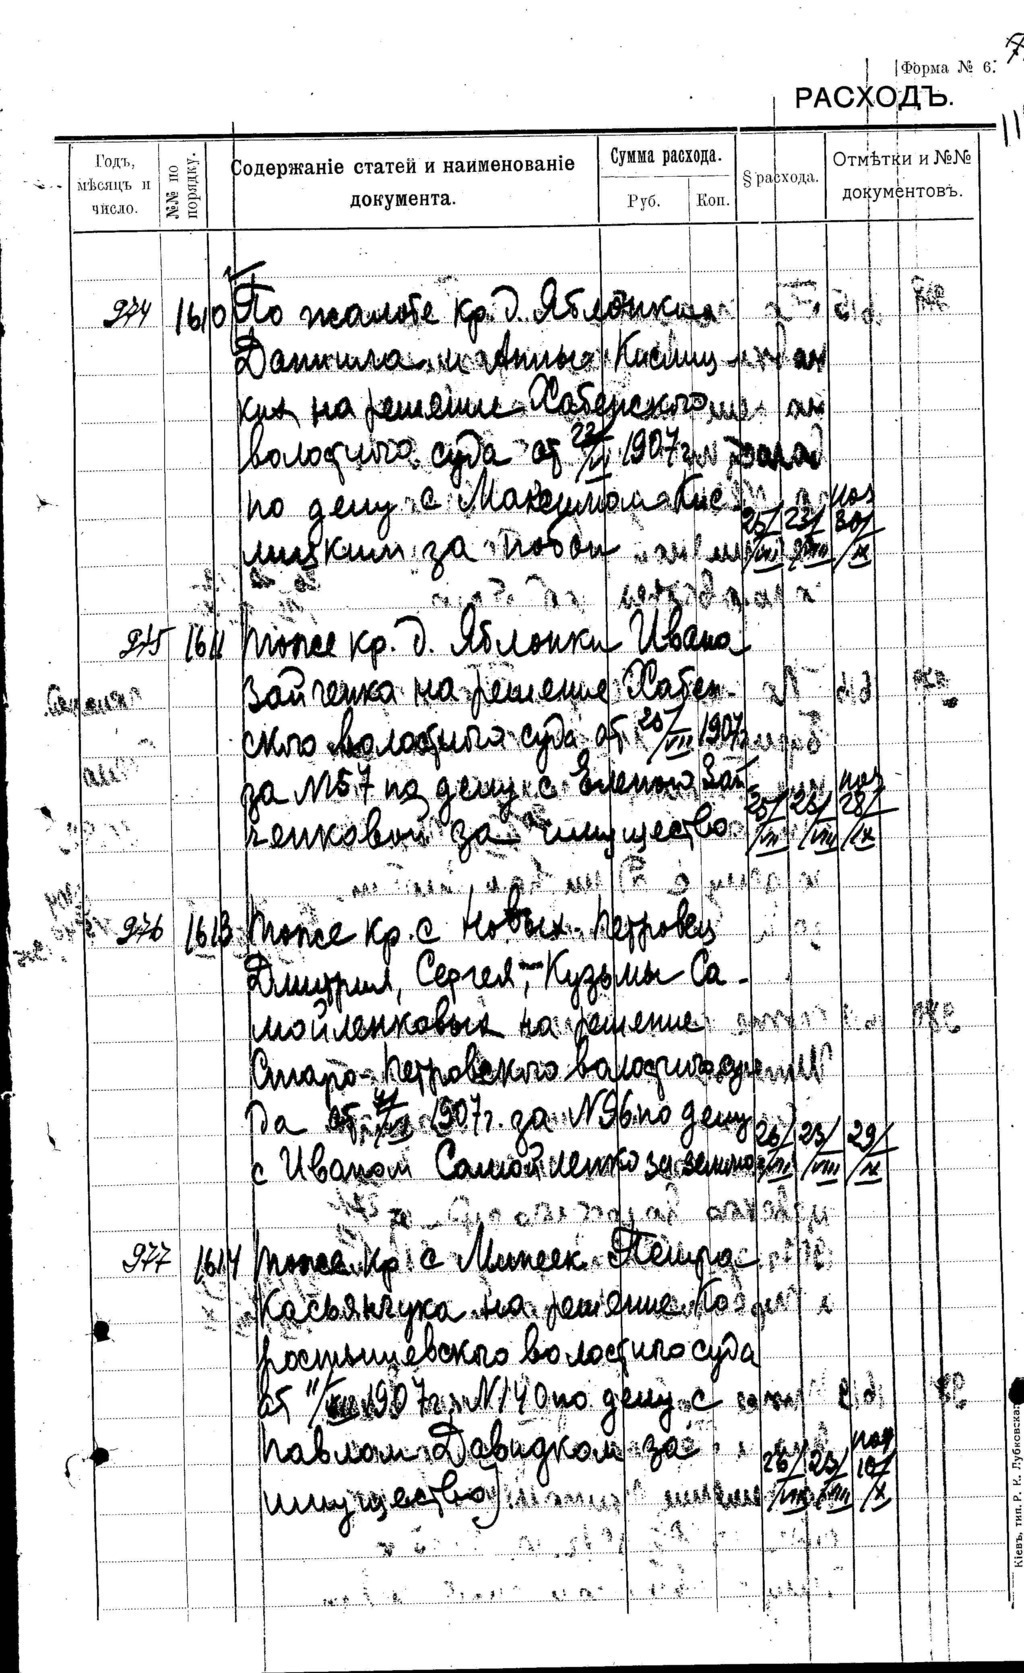 Форма № 6.
РАСХОДЪ.
Годъ, мѣсяцъ и число.
№№ по порядку.
Содержаніе статей и наименованіе документа.
Сумма расхода.
Руб. Коп.
§ расхода.
Отмѣтки и №№ документовъ.
974 1610 По жалобе кр. д. Яблонки
Даниила и Анны Кислиц
ких на решение Хабенского
волостного суда от 22/VI 1907 г.
по делу с Максимом Кис
лицким за побои 25/VII 23/VIII 30/IX
975 1611 тоже кр. д. Яблонки Ивана
Зайченка на решение Хабен-
ского волостного суда от 20/VII 1907
за №57 по делу с Еленой Зай
ченковой за имущество 25/VII 23/VIII 28/IX
976 1613 тоже кр. с Новых Петровец
Дмитрия, Сергея, Кузьмы Са-
мойленковых на решение
Старо-Петровского волостного су
да от 1907 г. за №96 по делу
с Иваном Самойленко за землю 26/VII 23/VIII 29/IX
977 1614 тоже кр. с Минеек Петра
Касьянчука на решение Ко
ростышевского волостного суда
от 11/VII 1907 г. №140 по делу с
Павлом Давидком за
имущество 26/VII 23/VIII 10/X
Кіевъ, тип. Р. К. Лубковска